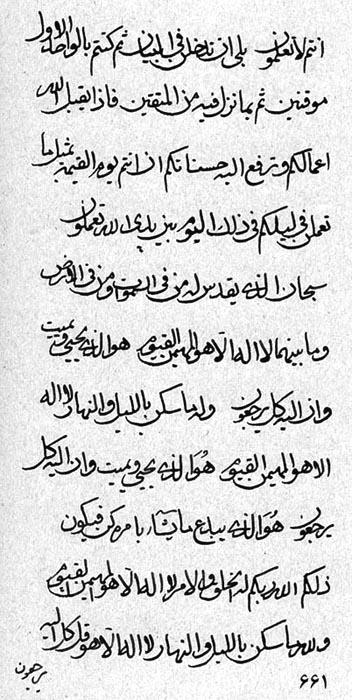 انتم لا تعلمون بلى ان تدخلن في البيان ثم كنتم بالواحد الاول
موقنين ثم بما نزل فيه من المتقين فاذا يقبل الله
اعمالكم وترفع اليه حسناتكم اذ انتم يوم القيمة بمثل ما
تعملن في ليلكم في ذلك اليوم بين يدي الله تعملون
سبحان الذي يقدس له من في السموات ومن في الارض
وما بينهما لا اله الا هو المهيمن القيوم هو الذي يحيي ويميت
وان اليه كل يرجعون وله ما سكن بالليل والنهار لا اله
الا هو المهيمن القيوم هو الذي يحيي ويميت وان اليه كل
يرجعون هو الذي يبدع ما يشاء بامره كن فيكون
ذلكم الله ربكم له الخلق والامر لا اله الا هو المهيمن القيوم
ولله ما سكن بالليل والنهار لا اله الا هو قل كل اليه
يرجعون
۶۶۱